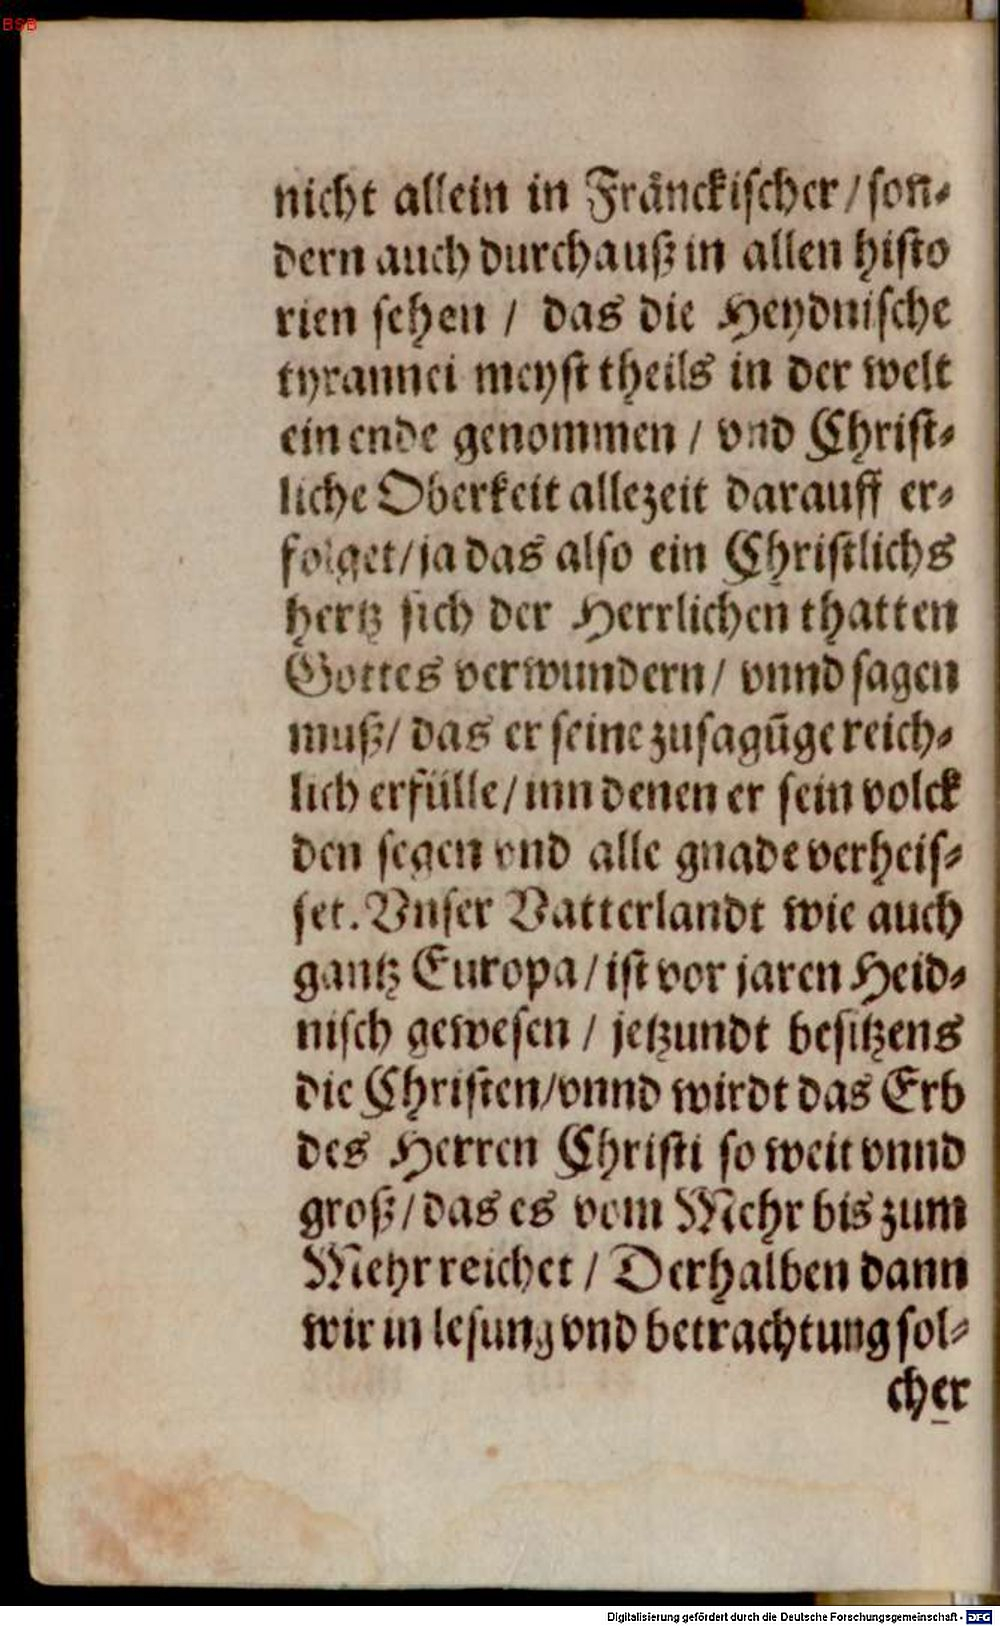 BSB
nicht allein in Fränckischer / son-
dern auch durchauß in allen histo
rien sehen / das die Heydnische
tyrannei meyst theils in der welt
ein ende genommen / vnd Christ-
liche Oberkeit allezeit darauff er-
folget / ja das also ein Christlichs
hertz sich der Herrlichen thatten
Gottes verwundern / vnnd sagen
muß / das er seine zusagũge reich-
lich erfülle / inn denen er sein volck
den segen vnd alle gnade verheis-
set. Vnser Vatterlandt wie auch
gantz Europa / ist vor jaren Heid-
nisch gewesen / jetzundt besitzens
die Christen / vnnd wirdt das Erb
des Herren Christi so weit vnnd
groß / das es vom Mehr bis zum
Mehr reichet / Derhalben dann
wir in lesung vnd betrachtung sol-
cher
Digitalisierung gefördert durch die Deutsche Forschungsgemeinschaft - DFG